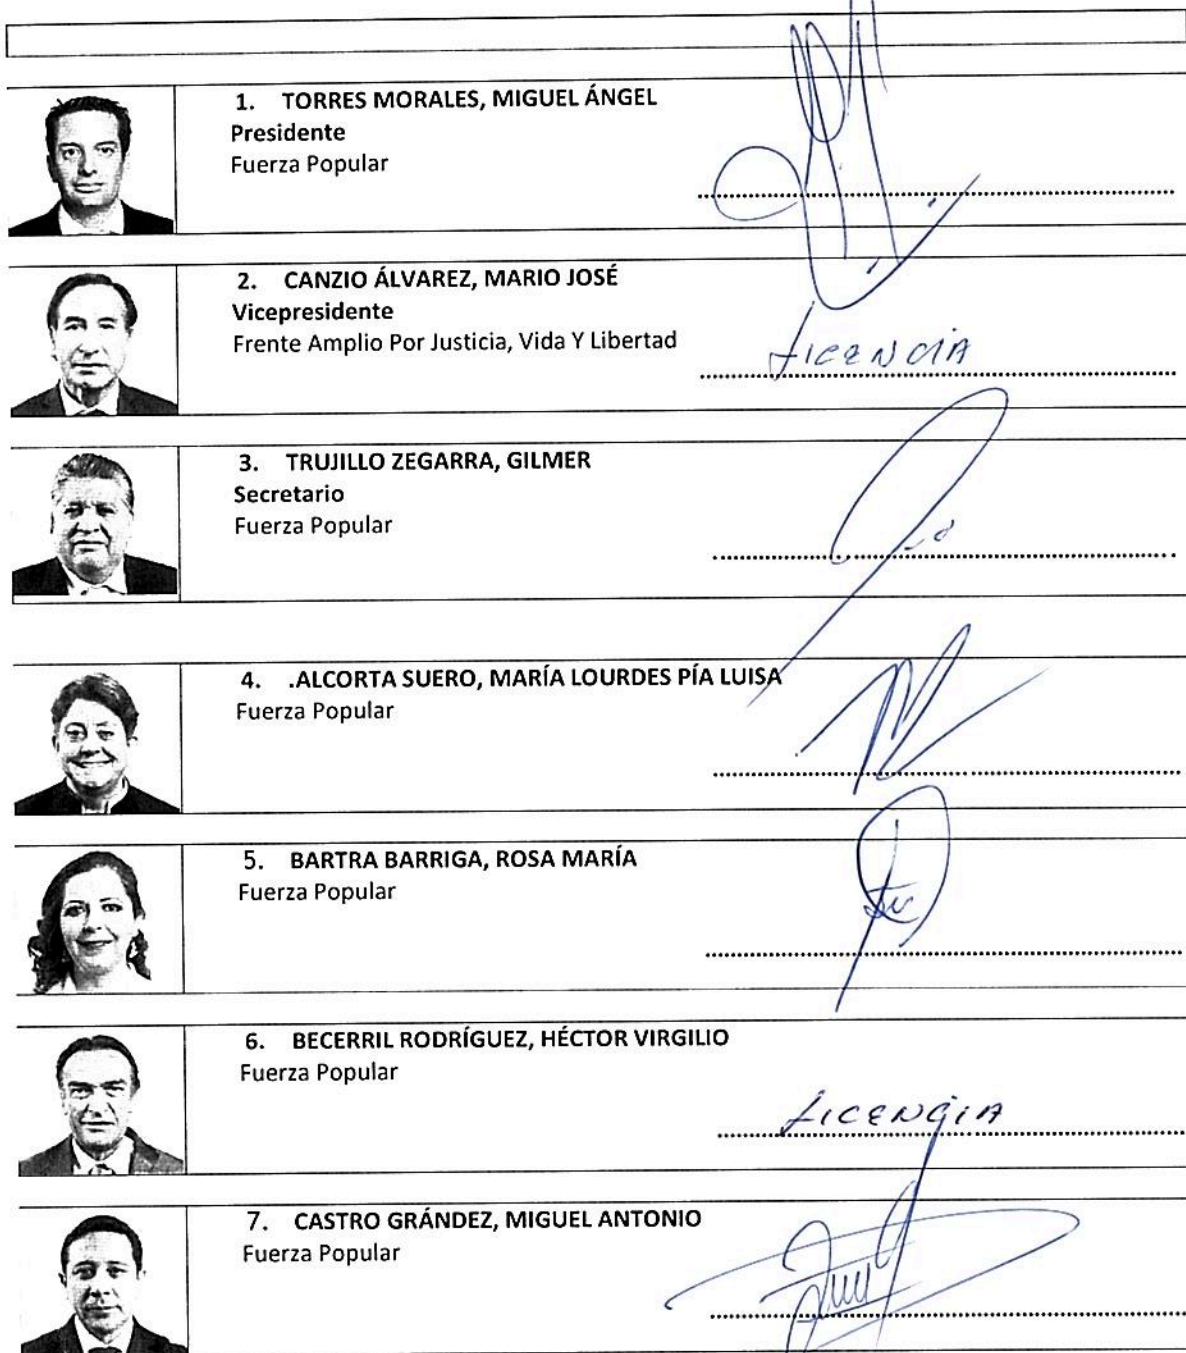 1. TORRES MORALES, MIGUEL ÁNGEL
Presidente
Fuerza Popular
2. CANZIO ÁLVAREZ, MARIO JOSÉ
Vicepresidente
Frente Amplio Por Justicia, Vida Y Libertad
LICENCIA
3. TRUJILLO ZEGARRA, GILMER
Secretario
Fuerza Popular
4. .ALCORTA SUERO, MARÍA LOURDES PÍA LUISA
Fuerza Popular
5. BARTRA BARRIGA, ROSA MARÍA
Fuerza Popular
6. BECERRIL RODRÍGUEZ, HÉCTOR VIRGILIO
Fuerza Popular
LICENCIA
7. CASTRO GRÁNDEZ, MIGUEL ANTONIO
Fuerza Popular